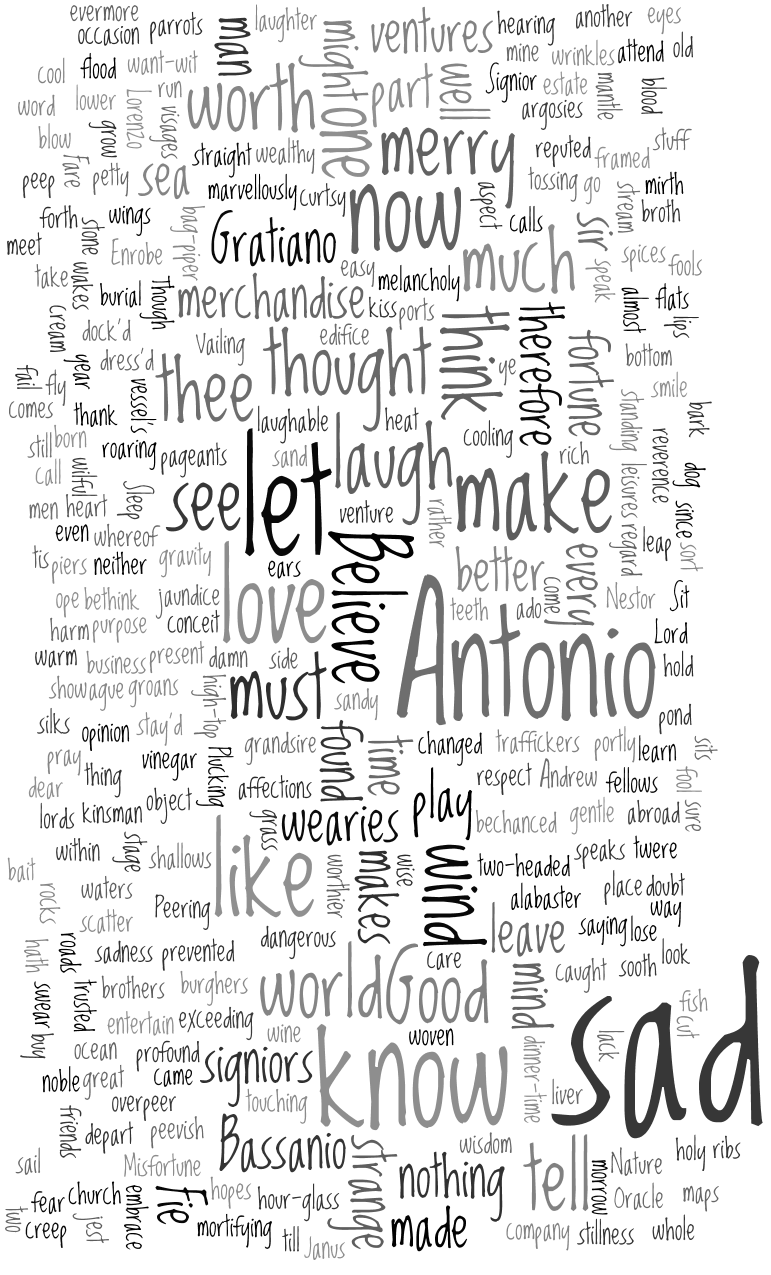 evermore
laughter
another
eyes
occasion
parrots
man
might
ventures
hearing
mine
wrinkles
attend
old
cool
flood
want-wit
run
visages
worth
one
part
well
Signior
estate
mantle
blood
argosies
word
lower
Lorenzo
blow
grow
Fare
straight
wealthy
merry
reputed
framed
stuff
peep
petty
sea
marvellously
curtsy
now
aspect
tossing
go
stream
mirth
broth
forth
stone
wings
bag-piper
Gratiano
calls
sir
meet
Enrobe
easy
melancholy
much
speak
spices
fools
take
wakes
burial
Though
merchandise
kiss
ports
think
therefore
almost
flats
lips
cream
dock'd
Vailing
edifice
fortune
bottom
year
dress'd
thee
thought
ye
smile
fail
fly
vessel's
comes
thank
laughable
heat
standing
bark
still
born
roaring
pageants
sand
laugh
cooling
rich
reverence
dog
call
wilful
Sleep
see
let
venture
rather
make
leisures
since
sort
men
heart
even
whereof
Believe
regard
leap
tis
piers
neither
gravity
ears
better
come
every
ope
bethink
jaundice
love
teeth
ado
Nestor
Sit
harm
purpose
conceit
Antonio
Lord
warm
business
present
damn
side
hold
show
ague
groans
high-top
must
sandy
pond
silks
opinion
stay'd
grandsire
found
time
changed
traffickers
portly
learn
sits
pray
thing
vinegar
Plucking
affections
play
respect
Andrew
fellows
fool
sure
dear
lords
kinsman
object
grass
wearies
bechanced
gentle
abroad
within
stage
shallows
like
worthier
makes
wise
wind
two-headed
speaks
twere
bait
rocks
waters
Peering
alabaster
place
doubt
way
scatter
leave
saying
lose
hath
roads
sadness
prevented
dangerous
care
mind
caught
sooth
look
swear
trusted
brothers
burghers
world
Good
sad
fish
buy
entertain
exceeding
wine
woven
lack
cut
ocean
profound
signiors
know
dinner-time
noble
great
came
touching
liver
friends
overpeer
depart
peevish
Bassanio
strange
wisdom
holy
ribs
sail
Misfortune
nothing
tell
morrow
Nature
fear
church
embrace
Fie
hopes
hour-glass
Oracle
maps
two
creep
jest
mortifying
till
Janus
made
company
stillness
whole